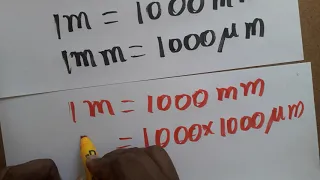 1m = 1000 m
1mm = 1000 μm
1m = 1000 mm
= 1000 × 1000 μm